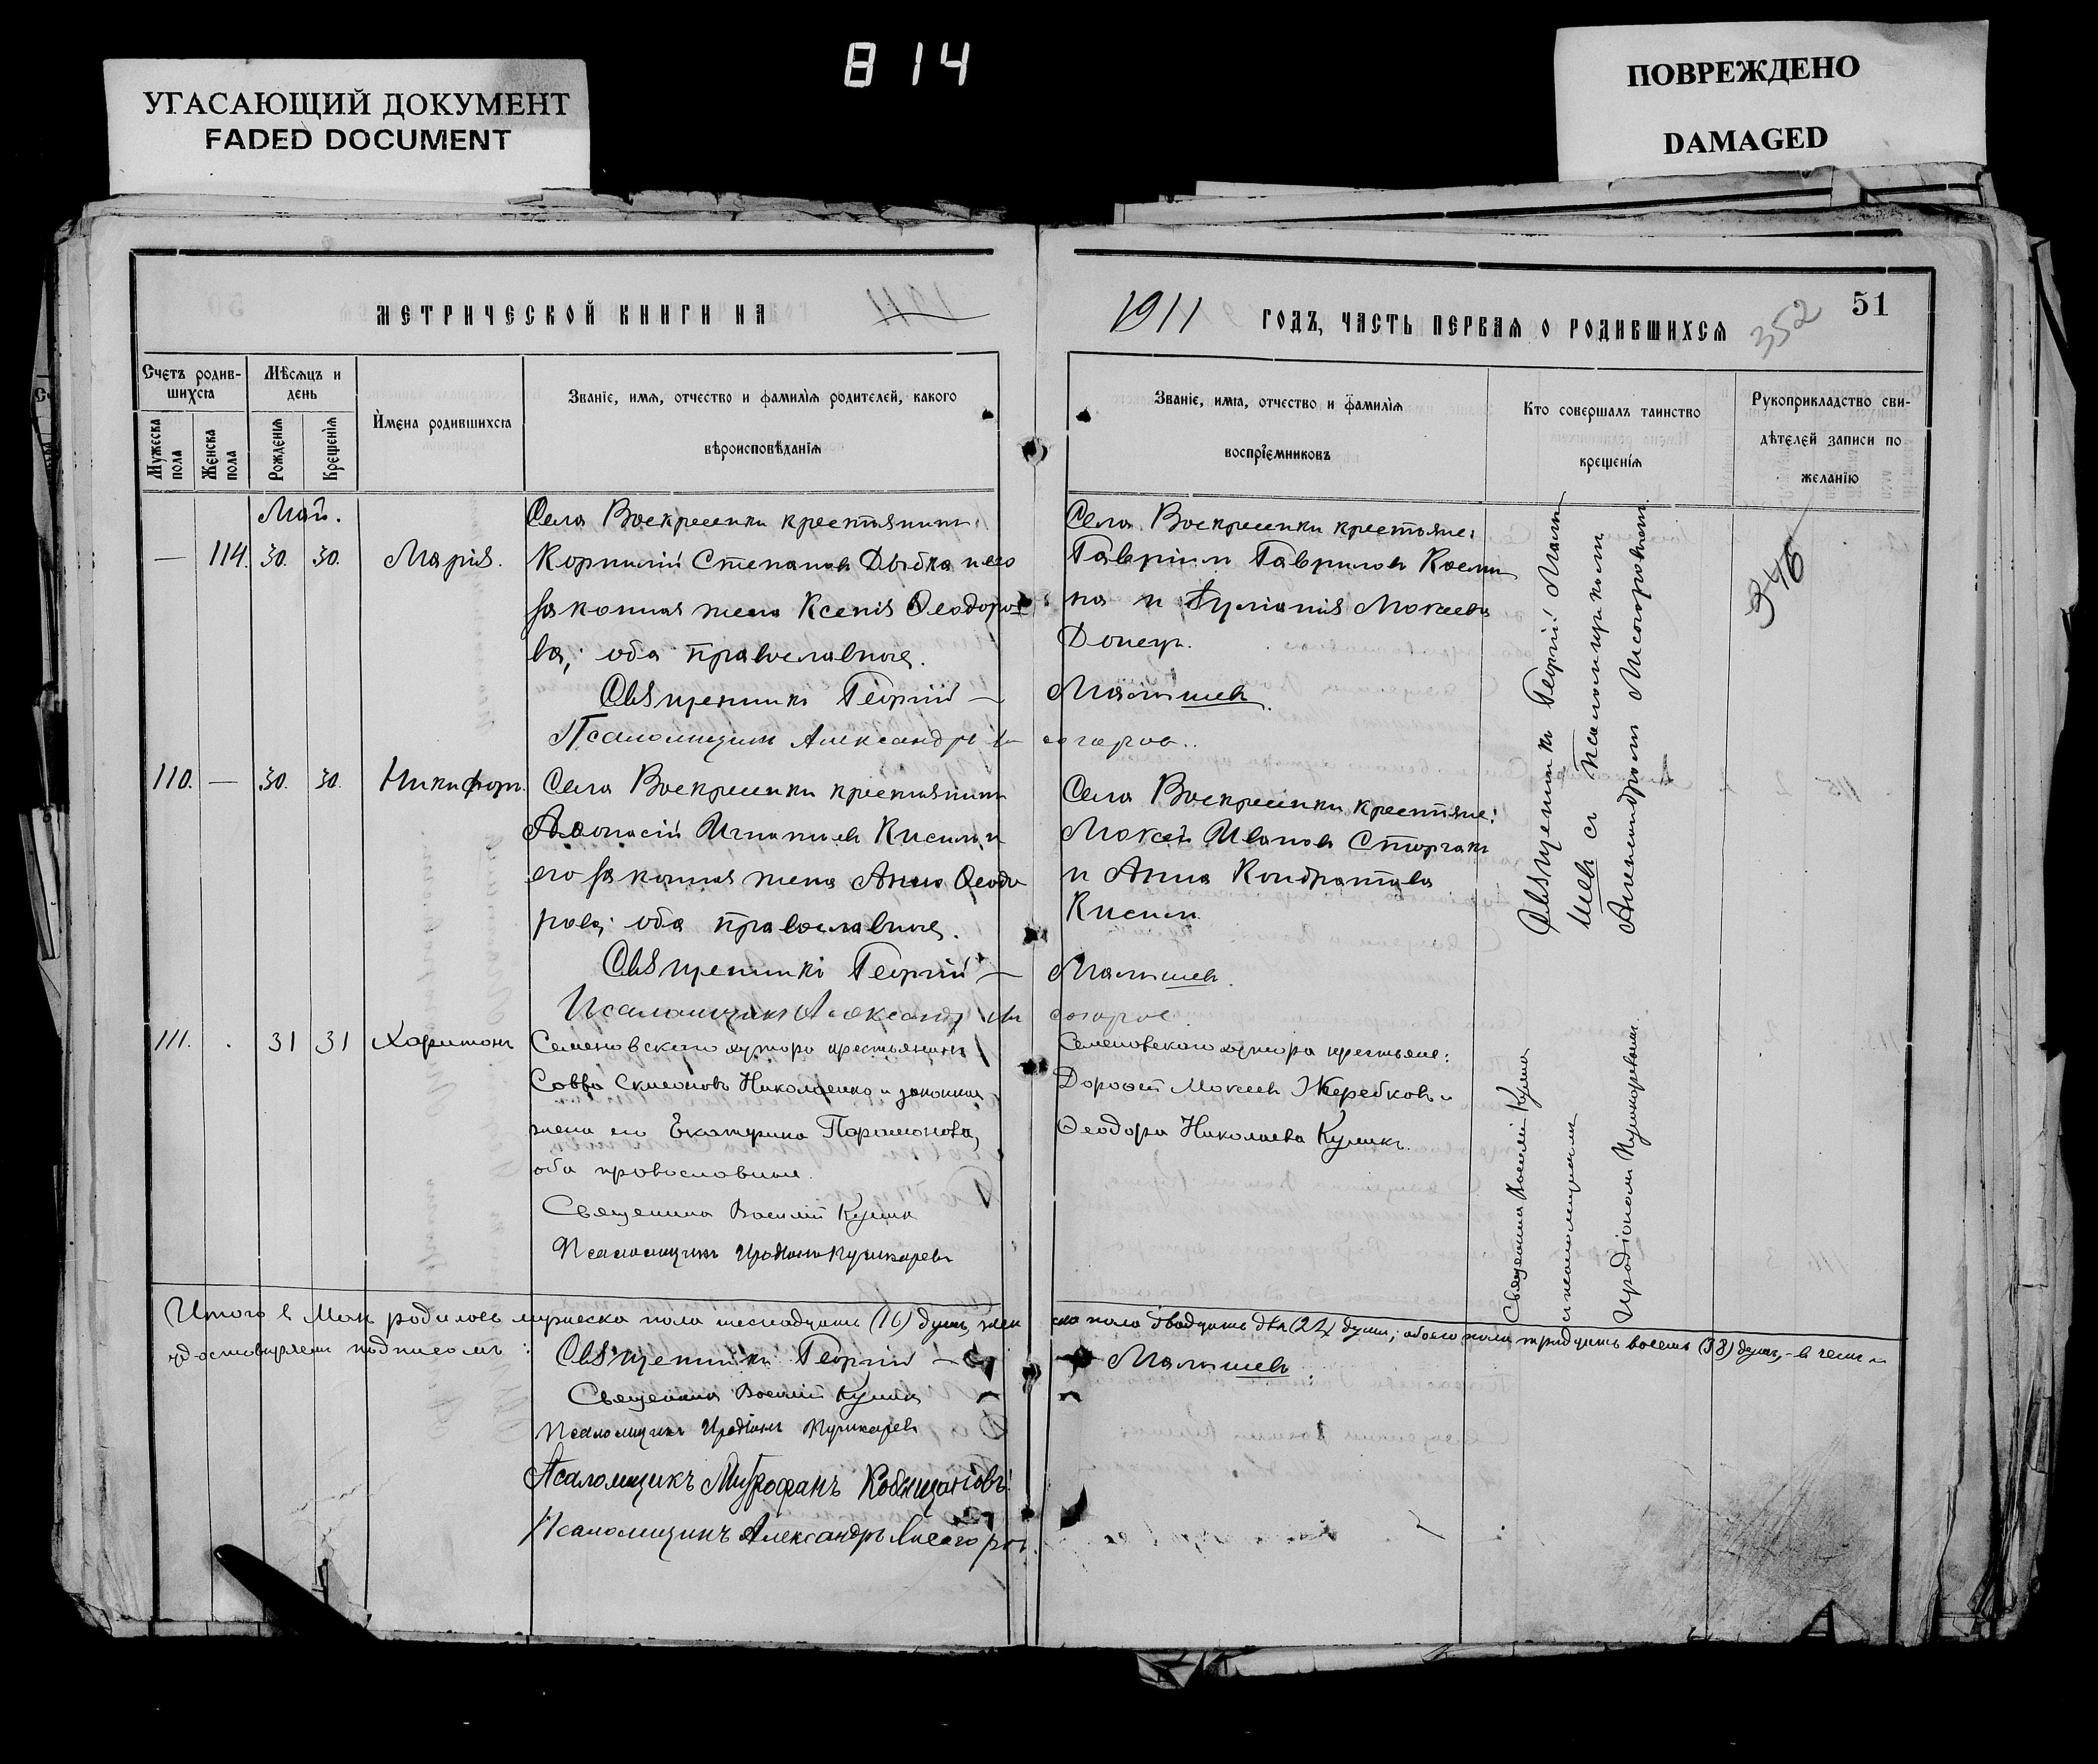 814
УГАСАЮЩИЙ ДОКУМЕНТ
FADED DOCUMENT
ПОВРЕЖДЕНО
DAMAGED
МЕТРИЧЕСКОЙ КНИГИ НА 1911
Счетъ родив-
шихся
Мѣсяцъ и
день
Имена родившихся
Званіе, имя, отчество и фамилія родителей, какого
вѣроисповѣданія
Мужеска пола
Женска пола
Рожденія
Крещенія
Май.
— 114. 30. 30. Марія.
Села Воскресенки крестьянинъ:
Корнилій Степановъ Дыбка и его
законная жена Ксенія Ѳеодоро-
ва, оба православные.
Священникъ Георгій —
Псаломщикъ Александръ Ли
110. — 30. 30. Никифоръ.
Села Воскресенки крестьянинъ
Аѳонасій Игнатьевъ Кисиль и
его законная жена Анна Ѳеодо
рова; оба православные.
Священникъ Георгій —
Псаломщикъ Александръ Ли
111. . 31 31 Харитонъ
Семеновскаго хутора крестьянинъ
Савва Симоновъ Николаенко и законная
жена его Екатерина Парамонова,
оба православные.
Священникъ Василій Кулик
Псаломщикъ Иродіонъ Пушкаревъ
Итого в Маѣ родилось мужеска пола шеснадцать (16) душъ, жен
удостовѣряемъ подписомъ:
Священникъ Георгій —
Священникъ Василій Кулик
Псаломщикъ Иродіонъ Пушкаревъ
Псаломщикъ Митрофанъ Кобыщановъ
Псаломщикъ Александръ Лисогоро
1911 ГОДЪ, ЧАСТЬ ПЕРВАЯ О РОДИВШИХСЯ
352
51
Званіе, имя, отчество и фамилія
воспріемниковъ
Кто совершалъ таинство
крещенія
Рукоприкладство сви-
дѣтелей записи по
желанію
Села Воскресенки крестьяне:
Гавріилъ Гавриловъ
на и Іуліанія Мокеева
Донецъ.
Малышевъ.
согоров..
Села Воскресенки крестьяне:
Мокей Ивановъ
и Анна Кондратьева
Кисиль.
Малышев.
согоров.
Семеновскаго хутора крестьяне:
Дороѳей Мокеевъ Жеребковъ и
Ѳеодора Николаева Куликъ.
Священникъ Георгій Малы
шевъ съ Псаломщикомъ
Александромъ Лисогоровымъ
346
Священникъ Василій Кулик
с псаломщикомъ
Иродіономъ Пушкаревымъ
ска пола двадцать два (22) души; обоего пола тридцать восемь (38) душъ, – в чемъ и
Малышевъ.